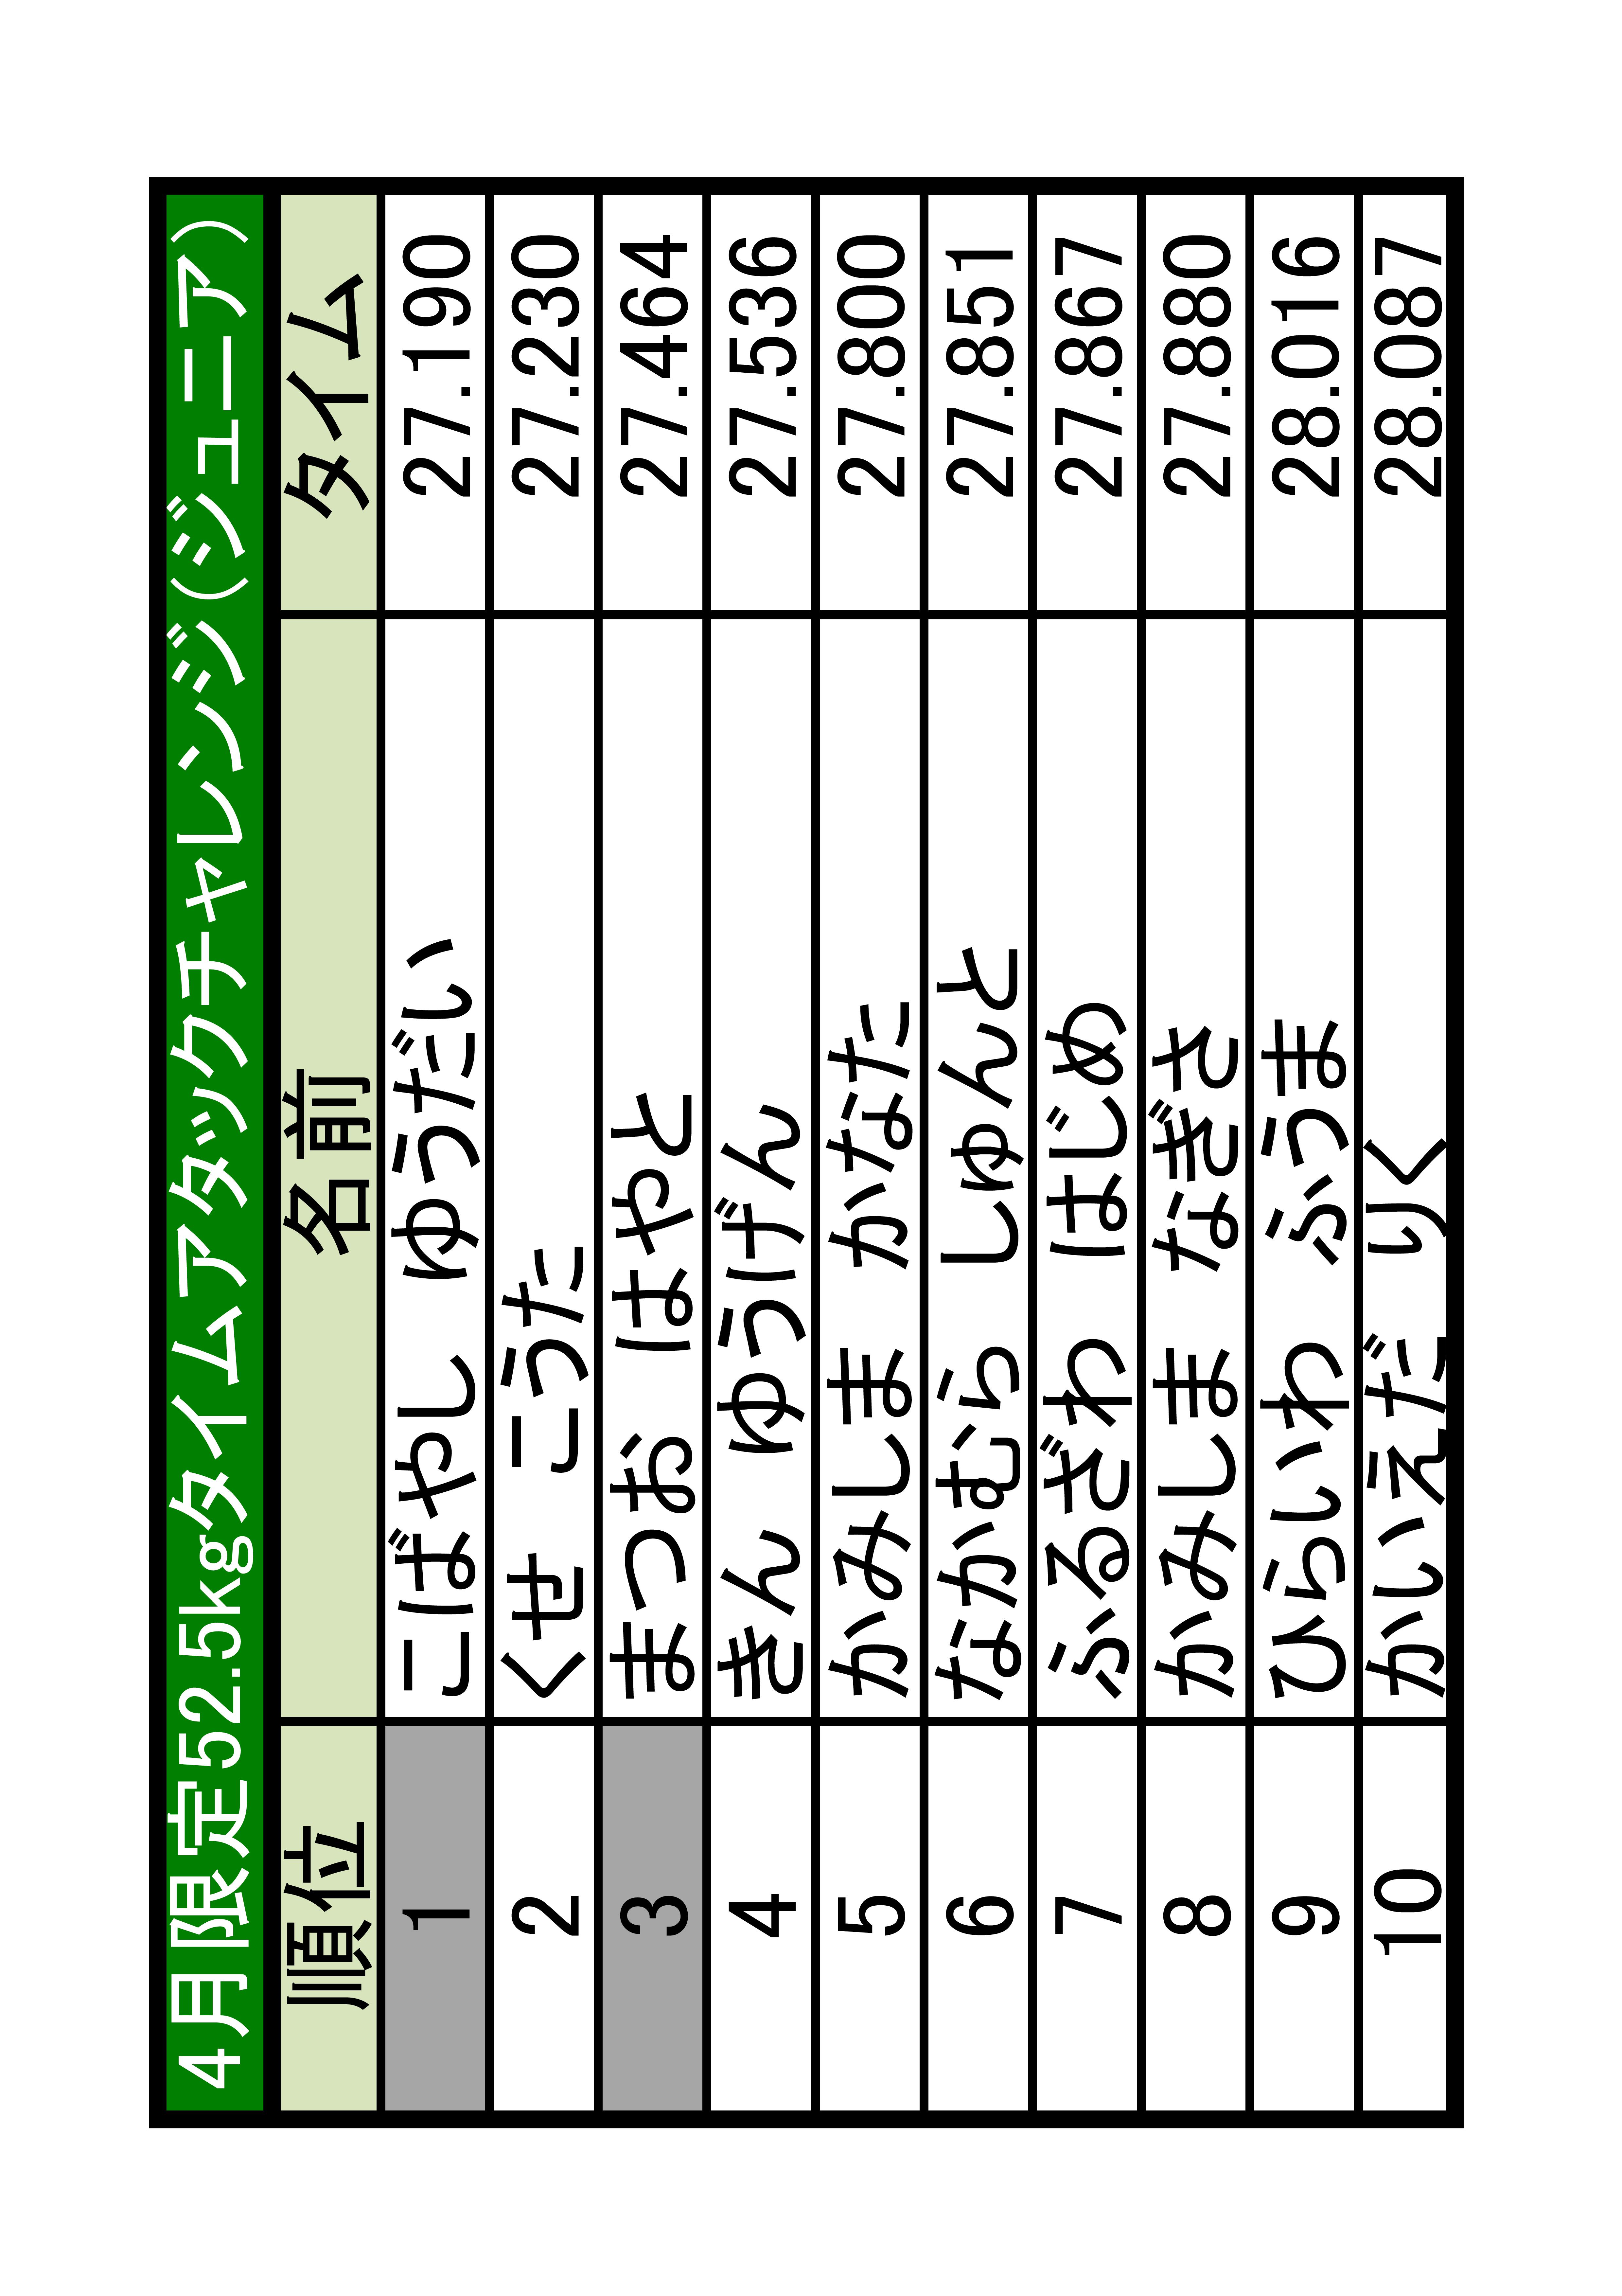 ４月限定52.5kgタイムアタックチャレンジ（ジュニア）
順位 名前 タイム
1 こばやし ゆうだい 27.190
2 くせ こうた 27.230
3 まつお はやと 27.464
4 きん ゆうげん 27.536
5 かみしま かなた 27.800
6 なかむら しゅんと 27.851
7 ふるざわ はじめ 27.867
8 かみしま なぎさ 27.880
9 ひらいわ ふうま 28.016
10 かいえだ りく 28.087